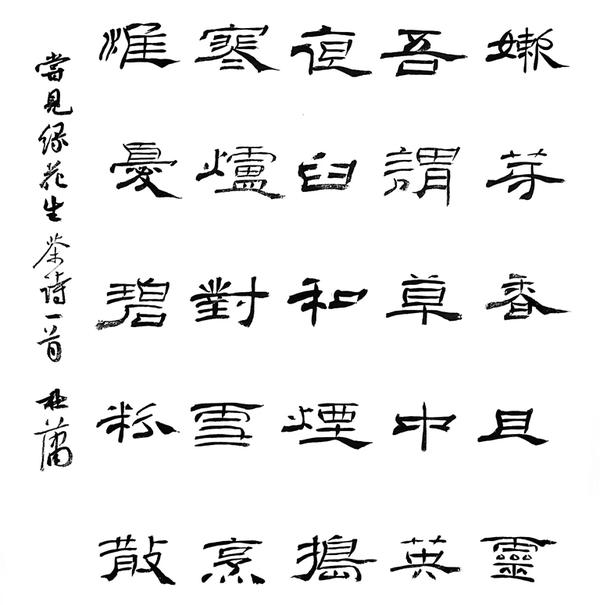 嫰芽香且靈
吾謂草中英
夜臼和煙搗
寒爐對雪烹
惟憂碧粉散
嘗見緑花生 茶诗一首 杜蒲